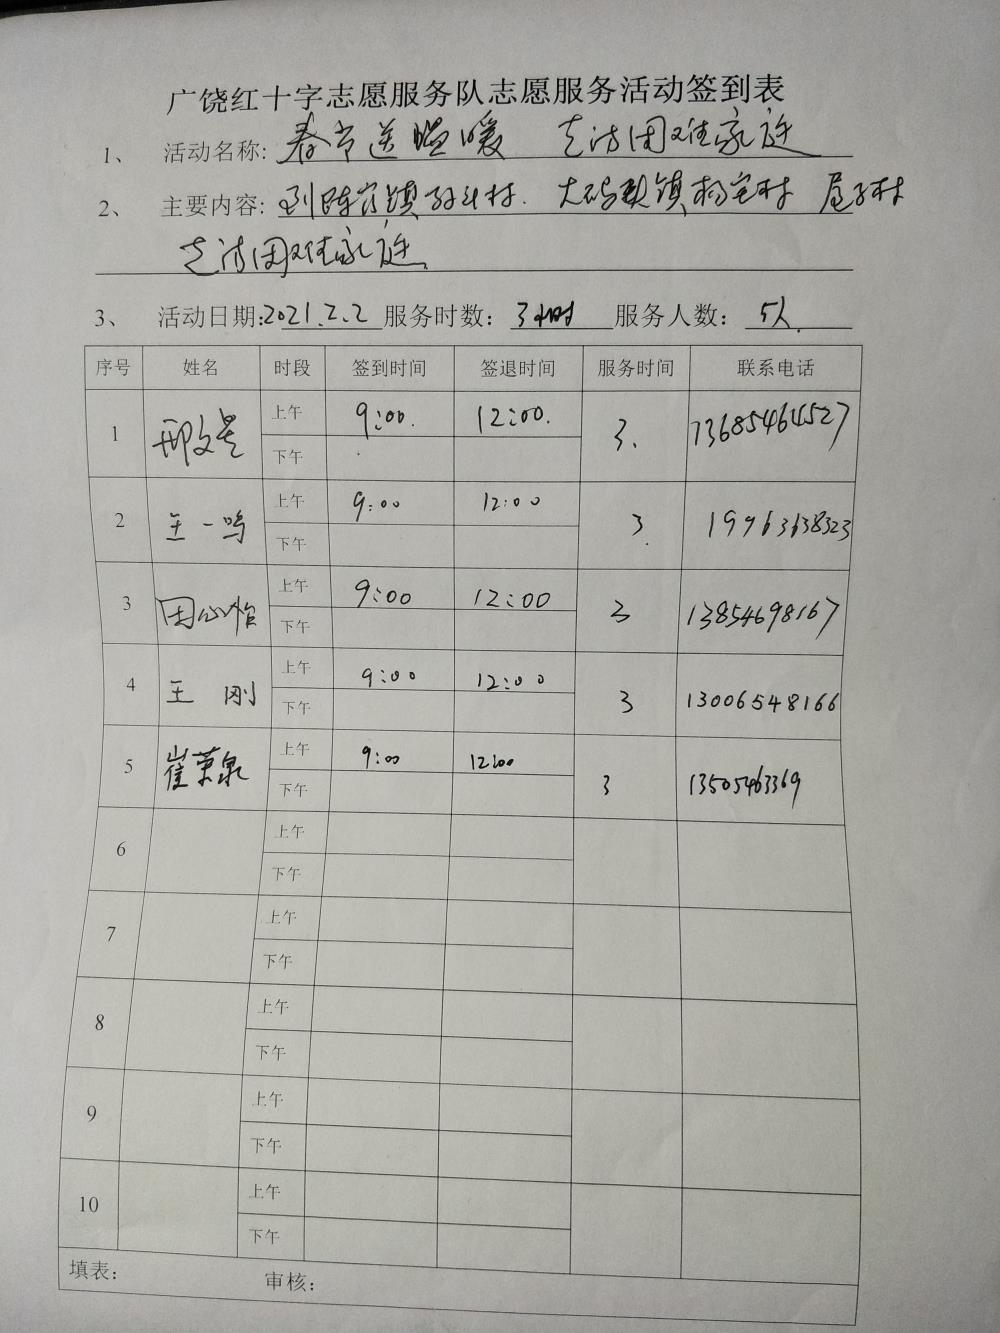 广饶红十字志愿服务队志愿服务活动签到表
1、 活动名称: 春节送温暖 走访困难家庭
2、 主要内容: 到陈官镇 村. 大码头镇 村
走访困难家庭
3、 活动日期:2021.2.2 服务时数: 3小时 服务人数: 5人.
序号 姓名 时段 签到时间 签退时间 服务时间 联系电话
1 邢文 上午 9:00. 12:00. 3. 13685464527
下午
2 王一鸣 上午 9:00 12:00 3. 19963638323
下午
3 田心怡 上午 9:00 12:00 3 13854698167
下午
4 王 刚 上午 9:00 12:00 3 13006548166
下午
5 崔荣泉 上午 9:00 12:00 3 13505463369
下午
6 上午
下午
7 上午
下午
8 上午
下午
9 上午
下午
10 上午
下午
填表: 审核: